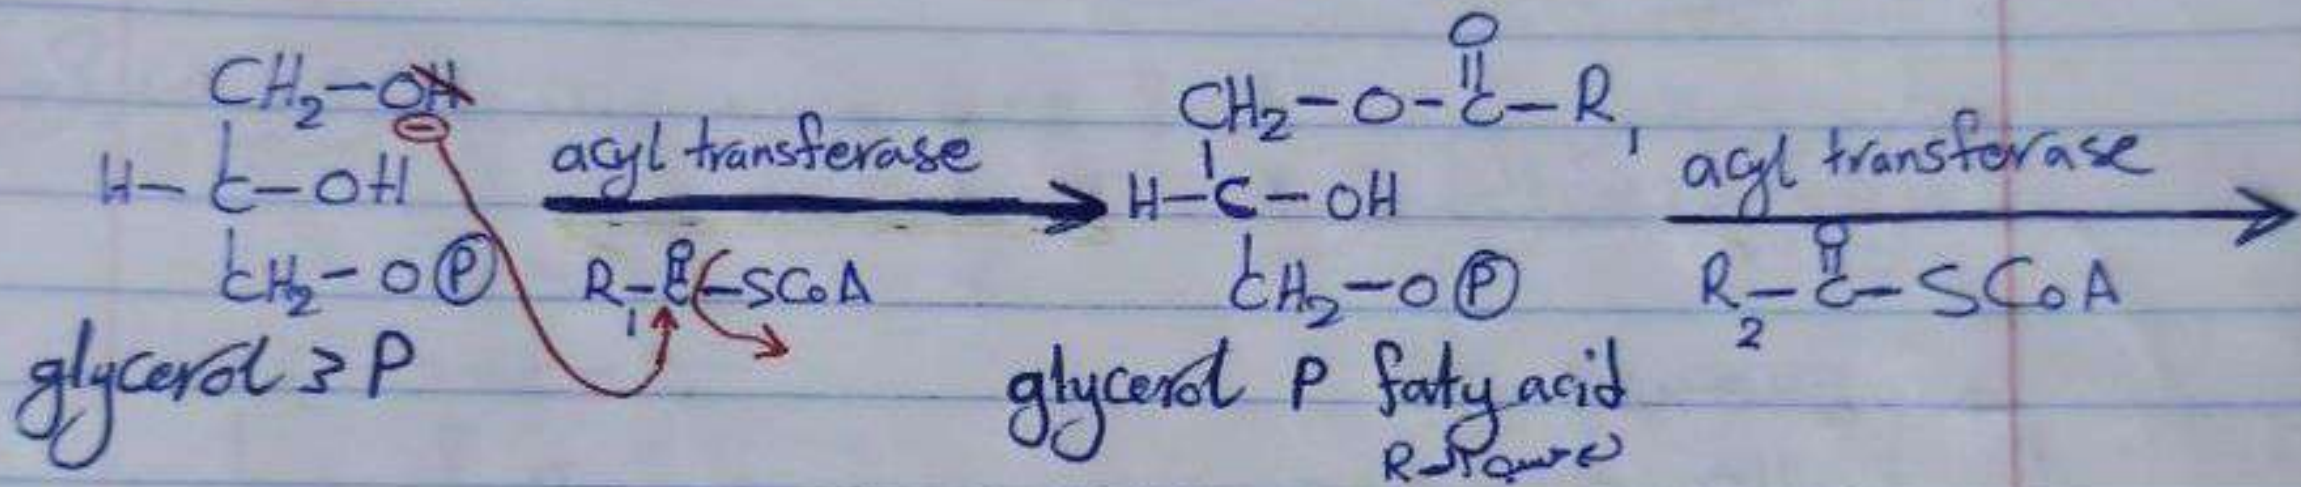 CH₂-OH
H-C-OH
CH₂-O(P)
glycerol 3 P
⊖
acyl transferase
R₁-C(=O)-SCoA
CH₂-O-C(=O)-R₁
H-C-OH
CH₂-O(P)
glycerol P faty acid
acyl transferase
R₂-C(=O)-SCoA